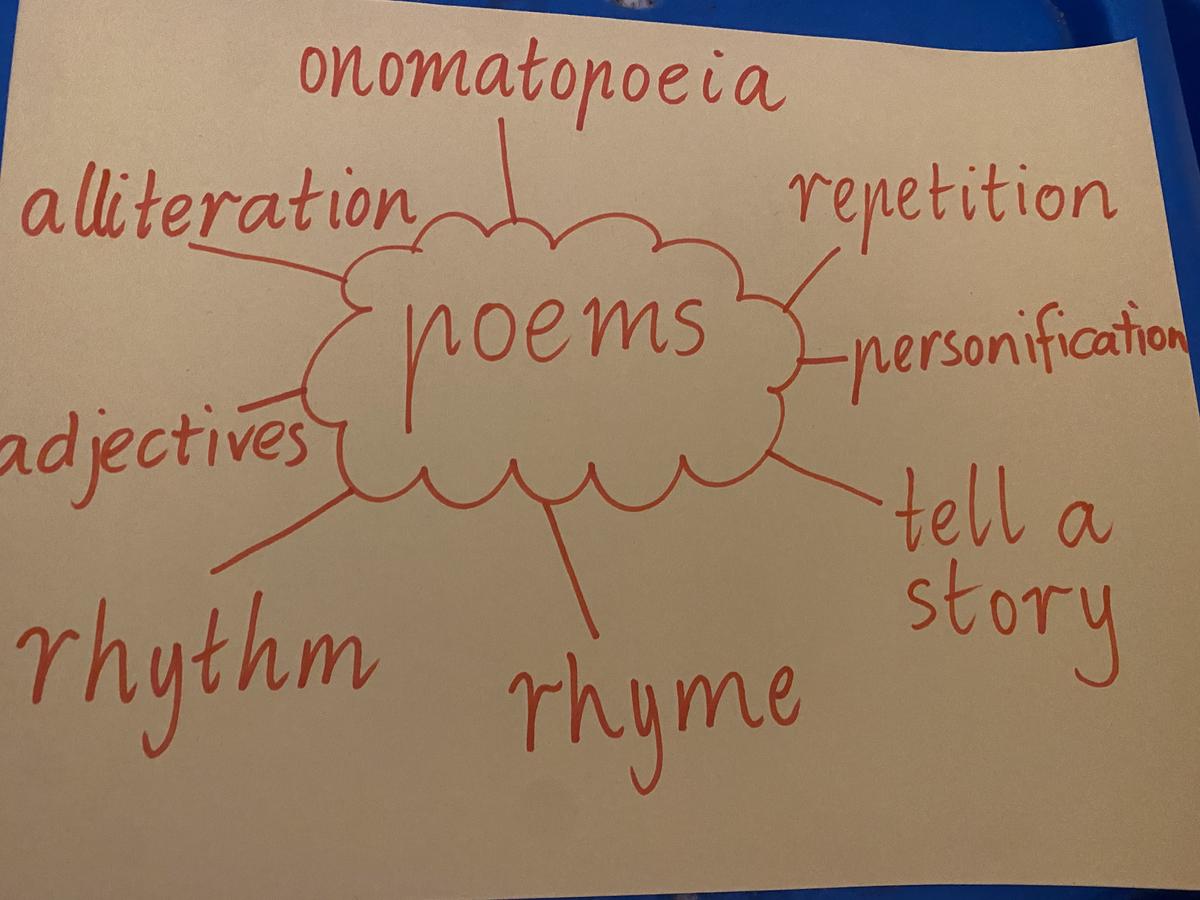 onomatopoeia
alliteration
repetition
poems
personification
adjectives
tell a
story
rhythm
rhyme